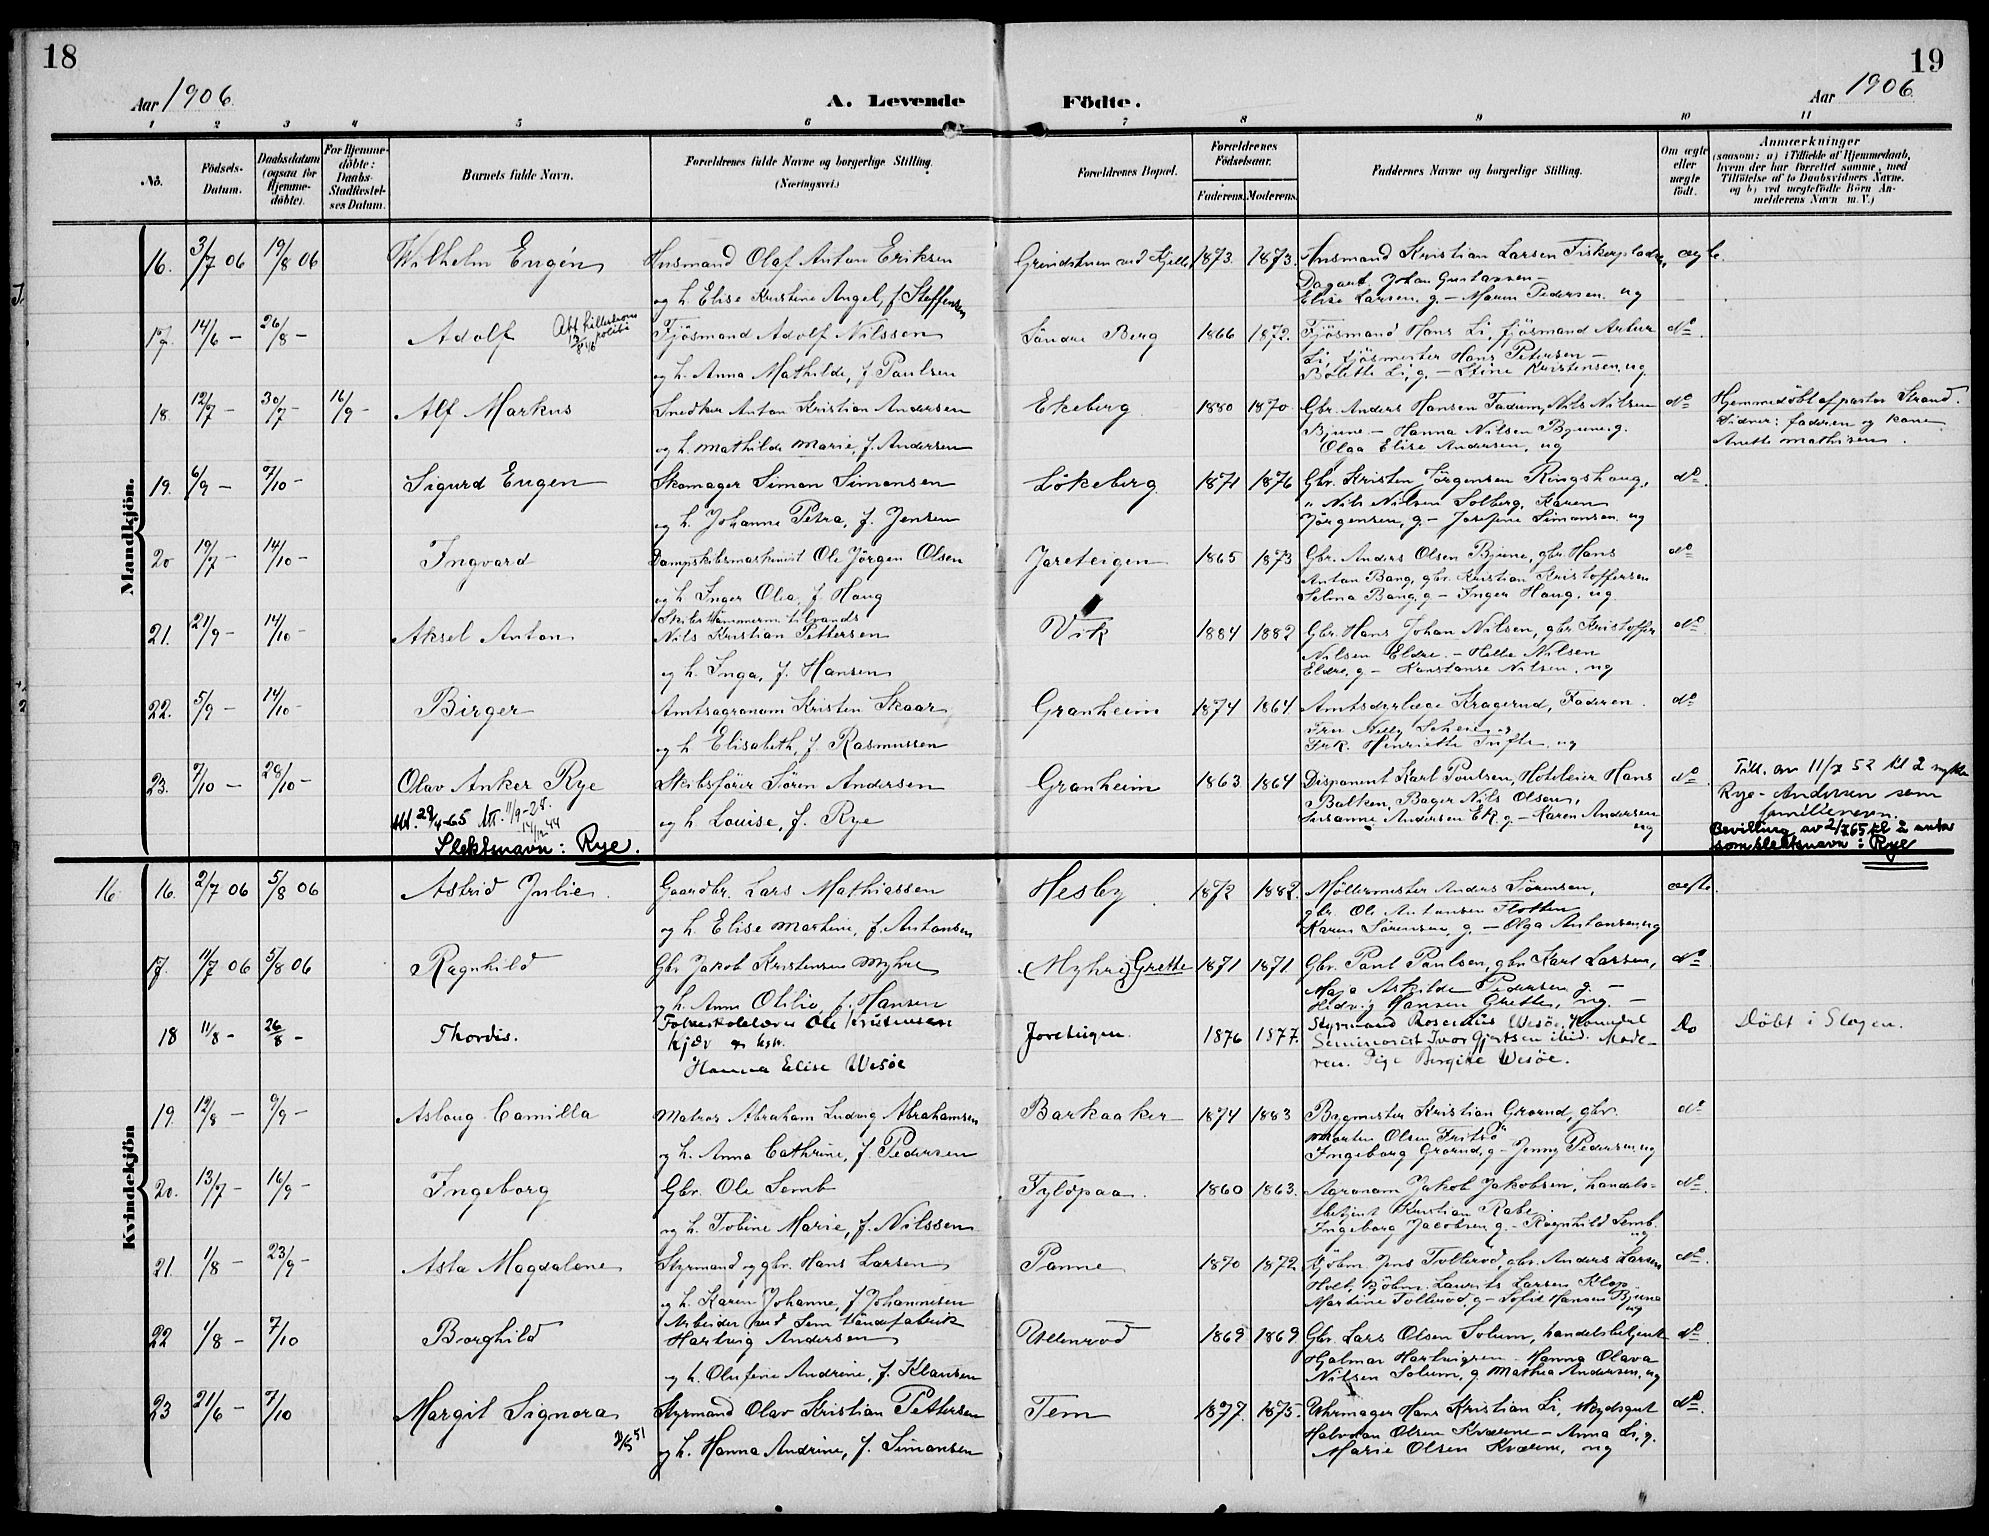 18
19
Aar 1906.
A. Levende Födte.
Aar 1906.
1 2 3 4 5 6 7 8 9 10 11
No.
Födsels-Datum.
Daabsdatum (ogsaa for Hjemme-döbte).
For Hjemme-döbte: Daabs-Stadfæstel-ses Datum.
Barnets fulde Navn.
Forældrenes fulde Navne og borgerlige Stilling. (Næringsvei.)
Forældrenes Bopæl.
Forældrenes Födselsaar.
Faderens. Moderens.
Faddernes Navne og borgerlige Stilling.
Om ægte eller uægte födt.
Anmærkninger
(saasom: a) i Tilfælde af Hjemmedaab, hvem der har forrettet samme, med Tilföielse af to Daabsvidners Navne, og b) ved uægtefödte Börn An-melderens Navn m. V.)
Mandkjön.
16. 3/7 06 19/8 06 Wilhelm Eugén Husmand Olaf Anton Eriksen Grindstuen ved Kjelle 1873. 1873. Husmand Kristian Larsen Fiskerpladsen, ægte.
og h. Elise Kristine Angel, f. Steffensen Dagarb. Johan Gustavsen –
Elise Larsen, g. – Maren Pedersen, ug
17. 14/6 – 26/8 – Adolf Fjösmand Adolf Nilssen Söndre Berg 1866 1872. Fjösmand Hans Li, fjösmand Artur do.
og h. Anna Mathilde, f. Paulsen Li, fjösmester Hans Petersen –
Bolette Li, g. – Stine Kristensen, ug
18. 12/7 – 30/7 – 16/9 – Alf Markus Snedker Anton Kristian Andersen Ekeberg 1880 1870. Gbr. Anders Hansen Fadum, Nils Nilsen do Hjemmedöbt af pastor Strand.
og h. Mathilde Marie, f. Andersen Bjune – Hanna Nilsen Bjune, g. Vidner: faderen og kone
Olga Elise Andersen, ug Anette Mathisen.
19. 6/9 – 7/10 – Sigurd Eugen Skomager Simon Simonsen Lökeberg 1871 1876 Gbr. Kristen Jörgensen Ringshaug, do.
og h. Johanne Petra, f. Jensen " Nils Nilsen Solberg, Karen
Jörgensen, g. – Josefine Simonsen, ug
20 19/7 – 14/10 – Ingvard Dampskibsmaskinist Ole Jörgen Olsen Jareteigen 1865 1873 Gbr. Anders Olsen Bjune, gbr. Hans do
og h. Inger Olea, f. Haug Anton Bang, gbr. Kristian Kristoffersen
Selma Bang, g – Inger Haug, ug.
21. 21/9 – 14/10 – Aksel Anton Skibstömmerm. tilvands
Nils Kristian Pettersen Vik 1884 1882 Gbr. Hans Johan Nilsen, gbr. Kristoffer do
og h. Inga, f. Hansen Nilsen Eldre. – Helle Nilsen
Eldre, g – Konstanse Nilsen, ug
22. 5/9 – 14/10 – Birger Amtsagronom Kristen Skaar Granheim 1874 1864 Amtsdyrlæge Kragerud, Faderen. do
og h. Elisabeth, f. Rasmussen Fru Nelly
Frk. Henriette Tufte, ug
23. 7/10 – 28/10 – Olav Anker Rye Skibsförer Sören Andersen Granheim 1863 1864 Disponent Karl Poulsen, Hoteleier Hans do Till. av 11/7 52 til å nytte
Att. 29/4-65 Att. 11/9-28. 14/12 44 og h. Louise, f. Rye Balken, Bager Nils Olsen, Rye-Andersen som
Slektsnavn: Rye. Susanne Andersen Ek g – Karen Andersen ug familienavn.
Bevilling av 2/7 65 til å anta
som slektsnavn: Rye
Kvindekjön
16 16. 2/7 06 5/8 06 Astrid Julie. Gaardbr. Lars Mathiassen Hesby 1872 1882. Möllermester Anders Sörensen, ægte.
og h. Elise Martine, f. Antonsen gbr. Ole Antonsen Flotten
Karen Sörensen, g – Olga Antonsen, ug
17. 11/7 06 5/8 06 Ragnhild Gbr Jakob Kristensen Myhre (Myhre) Grette 1871 1871 Gbr. Paul Paulsen, gbr Karl Larsen, do
og h. Anna Otilie, f. Hansen Maja Askilde Pedersen g. –
Hedvig Hansen Grette, ug. –
18 11/8 – 26/8 – Thordis. Folkeskolelærer Ole Kristensen Jareteigen. 1876 1877. Styrmand Rosenius Wesöe, do Döbt i Slagen.
Kjær og hstr. Seminarist Ivar Gjertsen ibid. Mode-
Hanna Elise Wesöe ren. Pige Birgitte Wesöe.
19. 12/8 – 9/9 – Aslaug Camilla Matros Abraham Ludvig Abrahamsen Barkaaker 1874 1883 Bygmester Kristian Grorud, gbr. do
og h. Anna Cathrine, f. Pedersen Morten Olsen Fritsö
Ingeborg Grorud, g – Jenny Pedersen, ug
20. 13/7 – 16/9 – Ingeborg Gbr. Ole Semb Fyldpaa. 1860 1863. Agronom Jakob Jakobsen, handels- do.
og h. Tobine Marie, f. Nilssen betjent Kristian Rabe
Ingeborg Jacobsen g. – Ragnhild Semb. ug
21. 1/8 – 23/9 – Asta Magdalene Styrmand og gbr. Hans Larsen Panne 1870 1872 Kjöbm. Jens Tollerød, gbr. Anders Larsen do.
og h. Karen Johanne, f Johannesen Holt, Kjöbm. Laurits Larsen Klop.
Martine Tollerød, g – Sofie Hansen Bjune ug
22 1/8 – 7/10 Borghild Arbeider ved Sem Tändefabrik
Hartvig Andersen Ullenrød 1869 1869 Gbr. Lars Olsen Solum, handelsbetjent do
og h. Olufine Andrine, f. Klausen Hjalmar Hartvigsen – Hanna Olava
Nilsen Solum, g Mathea Andersen, ug
23 21/6 – 7/10 Margit Signora Styrmand Olav Kristian Pettersen Tem 1877. 1875. Uhrmager Hans Kristian Li, skydsgut do
og h. Hanna Andrine, f. Simonsen Halvdan Olsen Kværne – Anna Li, g.
Marie Olsen Kværne, ug